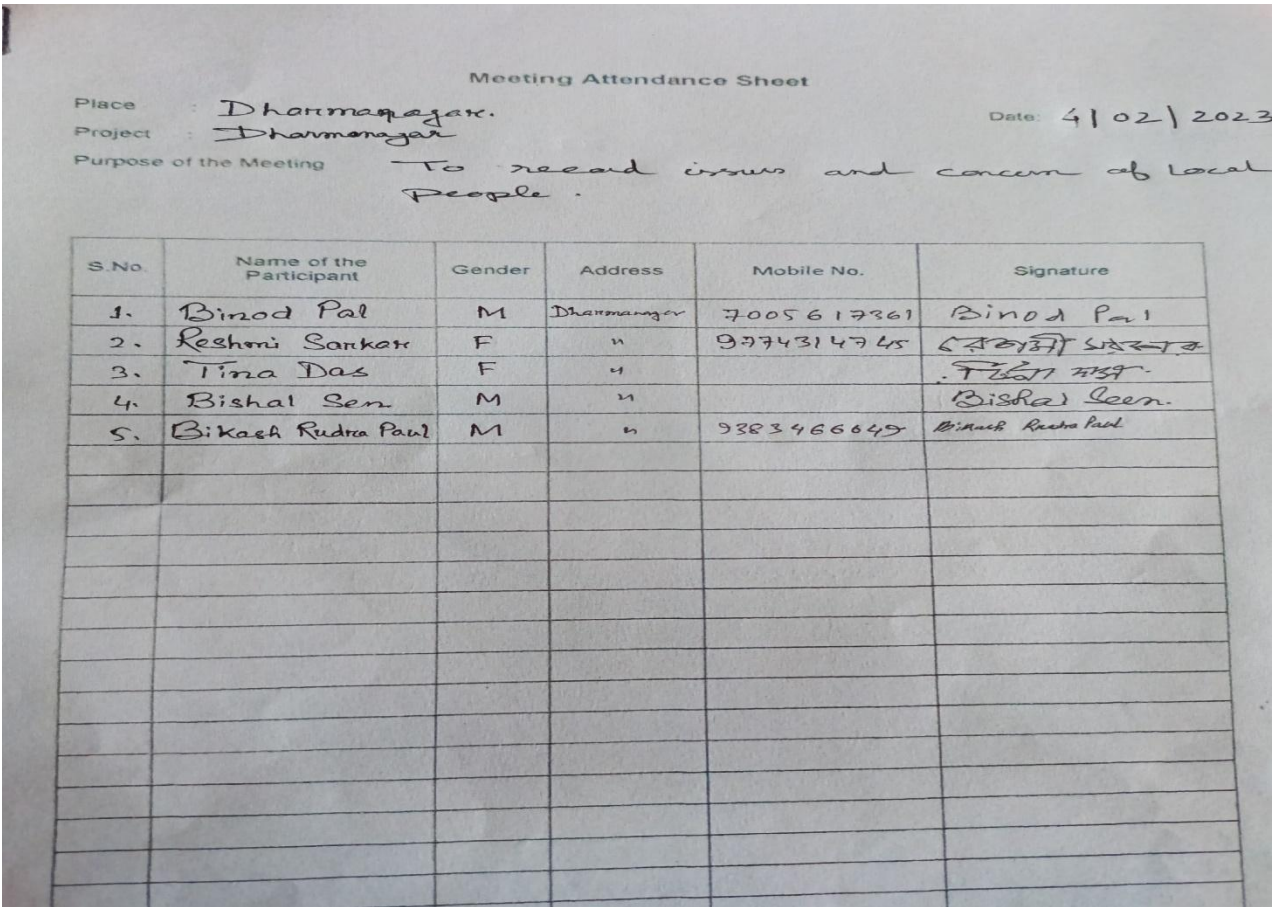 Meeting Attendance Sheet
Place : Dharmanagar.
Date: 4/02/2023
Project : Dharmanagar
Purpose of the Meeting To record issues and concern of Local
People.
S.No. Name of the Participant Gender Address Mobile No. Signature
1. Binod Pal M Dharmanagar 7005617361 Binod Pal
2. Reshmi Sarkar F " 9774314745 সরকার
3. Tina Das F " টিনা দাস.
4. Bishal Sen M " Bishal Seen.
5. Bikash Rudra Paul M " 9383466649 Bikash Rudra Paul